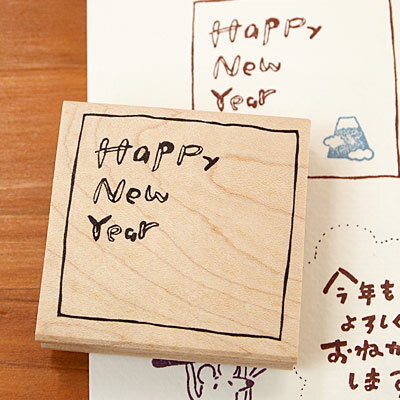 Happy
New
Year
Happy
New
Year
今年も
よろしく
おねが
します